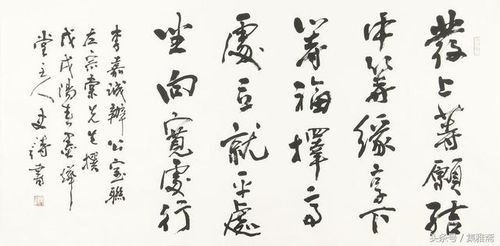 發上等願結
中等緣享下
等福擇高
處立就平處
坐向寬處行
李嘉誠辦公室聯
左宗棠先生撰
戊戌陽春墨
堂主人書
头条号 / 集雅斋